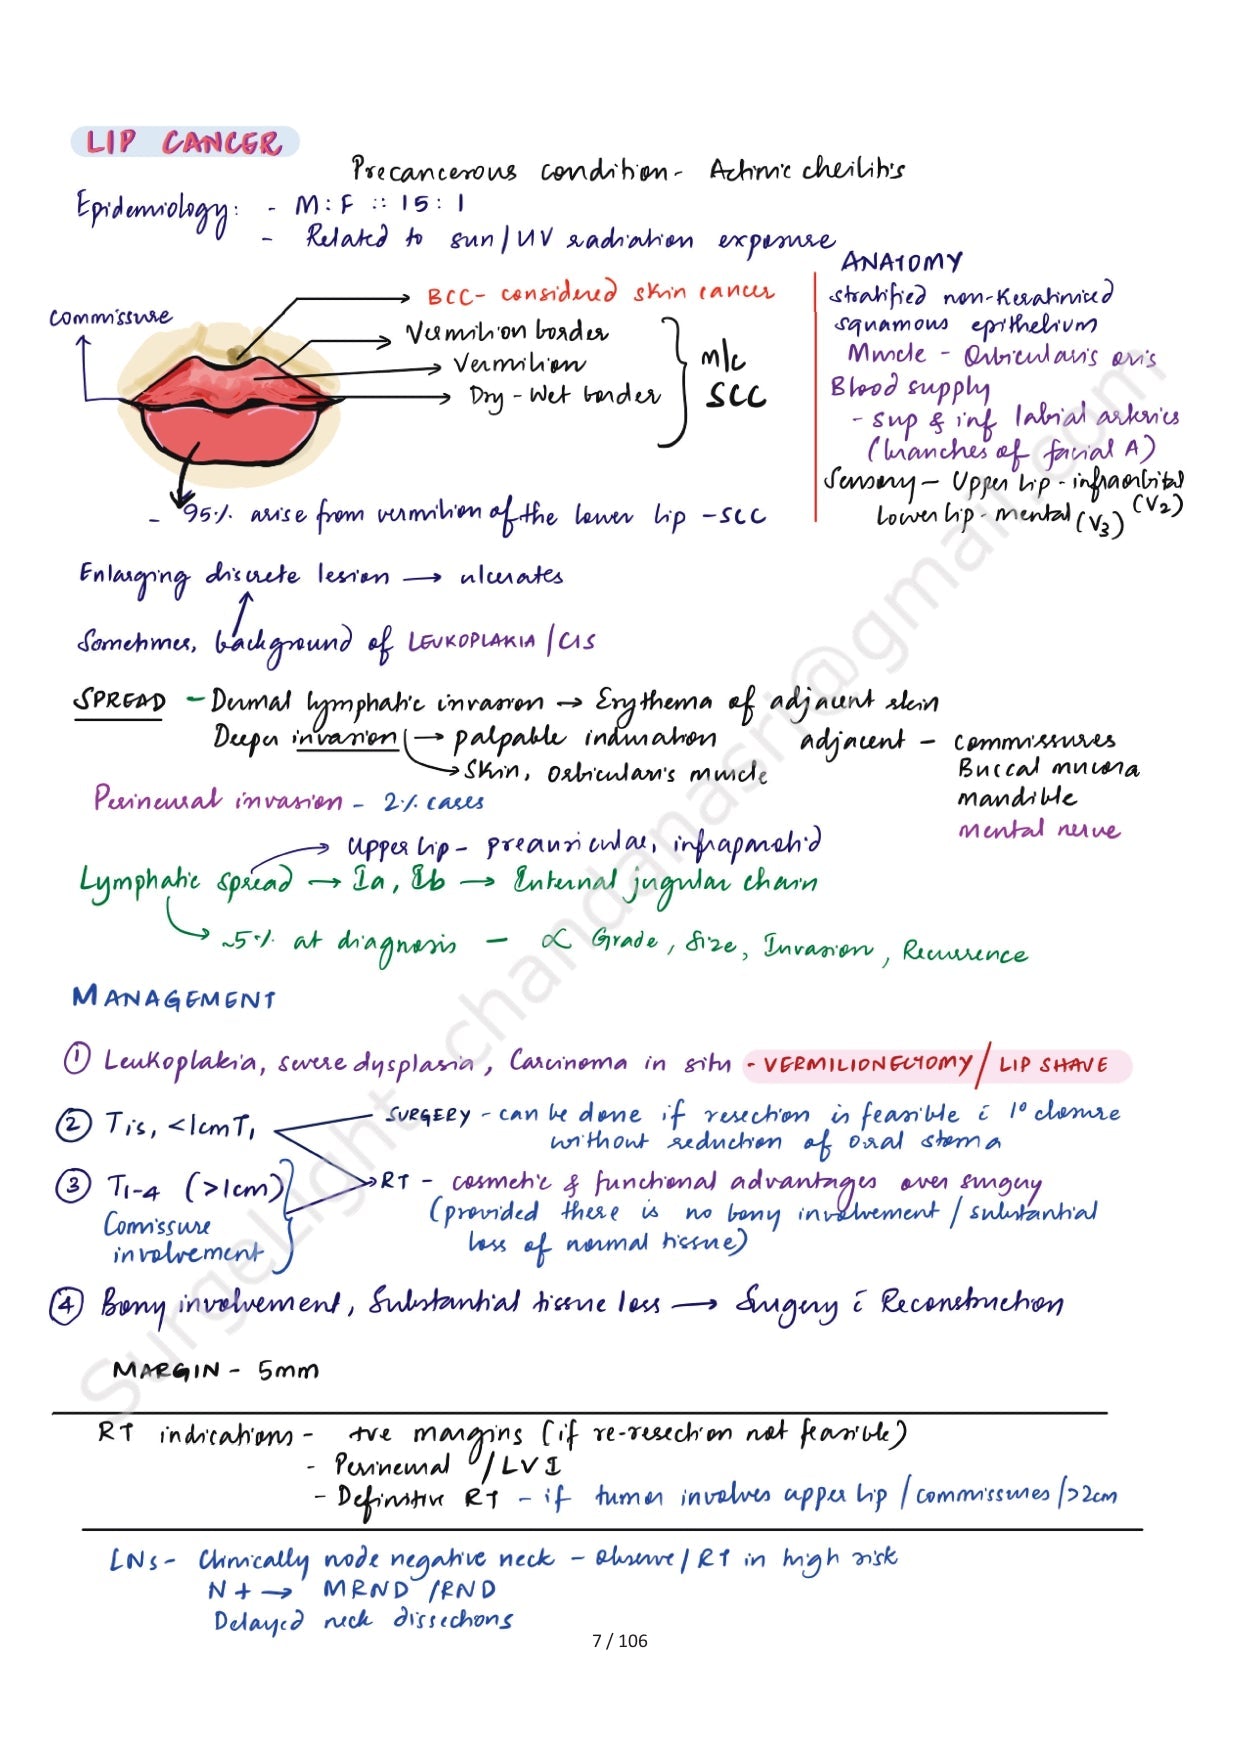 LIP CANCER
Precancerous condition - Actinic cheilitis
Epidemiology: - M:F :: 15:1
- Related to sun/UV radiation exposure
commissure
BCC- considered skin cancer
Vermilion border
Vermilion
Dry-Wet border
m/c
SCC
- 95% arise from vermilion of the lower lip -SCC
ANATOMY
stratified non-Keratinized
squamous epithelium
Muscle - Orbicularis oris
Blood supply
- Sup & inf labial arteries
(branches of facial A)
Sensory- Upper lip - infraorbital (V2)
Lower lip - mental (V3)
Enlarging discrete lesion → ulcerates
Sometimes, background of LEUKOPLAKIA/CIS
SPREAD - Dermal lymphatic invasion → Erythema of adjacent skin
Deeper invasion → palpable induration
→ Skin, Orbicularis muscle
adjacent - commissures
Buccal mucosa
mandible
mental nerve
Perineural invasion - 2% cases
→ Upper lip - preauricular, infraparotid
Lymphatic spread → Ia, Ib → Internal jugular chain
→ ~5% at diagnosis - ∝ Grade, Size, Invasion, Recurrence
MANAGEMENT
① Leukoplakia, severe dysplasia, Carcinoma in situ - VERMILIONECTOMY/ LIP SHAVE
② Tis, <1cm T1
SURGERY - can be done if resection is feasible c̄ 1° closure
without reduction of oral stoma
③ T1-4 (>1cm)
Comissure
involvement
RT - cosmetic & functional advantages over surgery
(provided there is no bony involvement / substantial
loss of normal tissue)
④ Bony involvement, Substantial tissue loss → Surgery c̄ Reconstruction
MARGIN - 5mm
RT indications - +ve margins (if re-resection not feasible)
- Perineural / LVI
- Definitive RT - if tumor involves upper lip / commissures / >2cm
LNs - Clinically node negative neck - observe/RT in high risk
N+ → MRND /RND
Delayed neck dissections
7 / 106
SurgeLight chandanasri@gmail.com